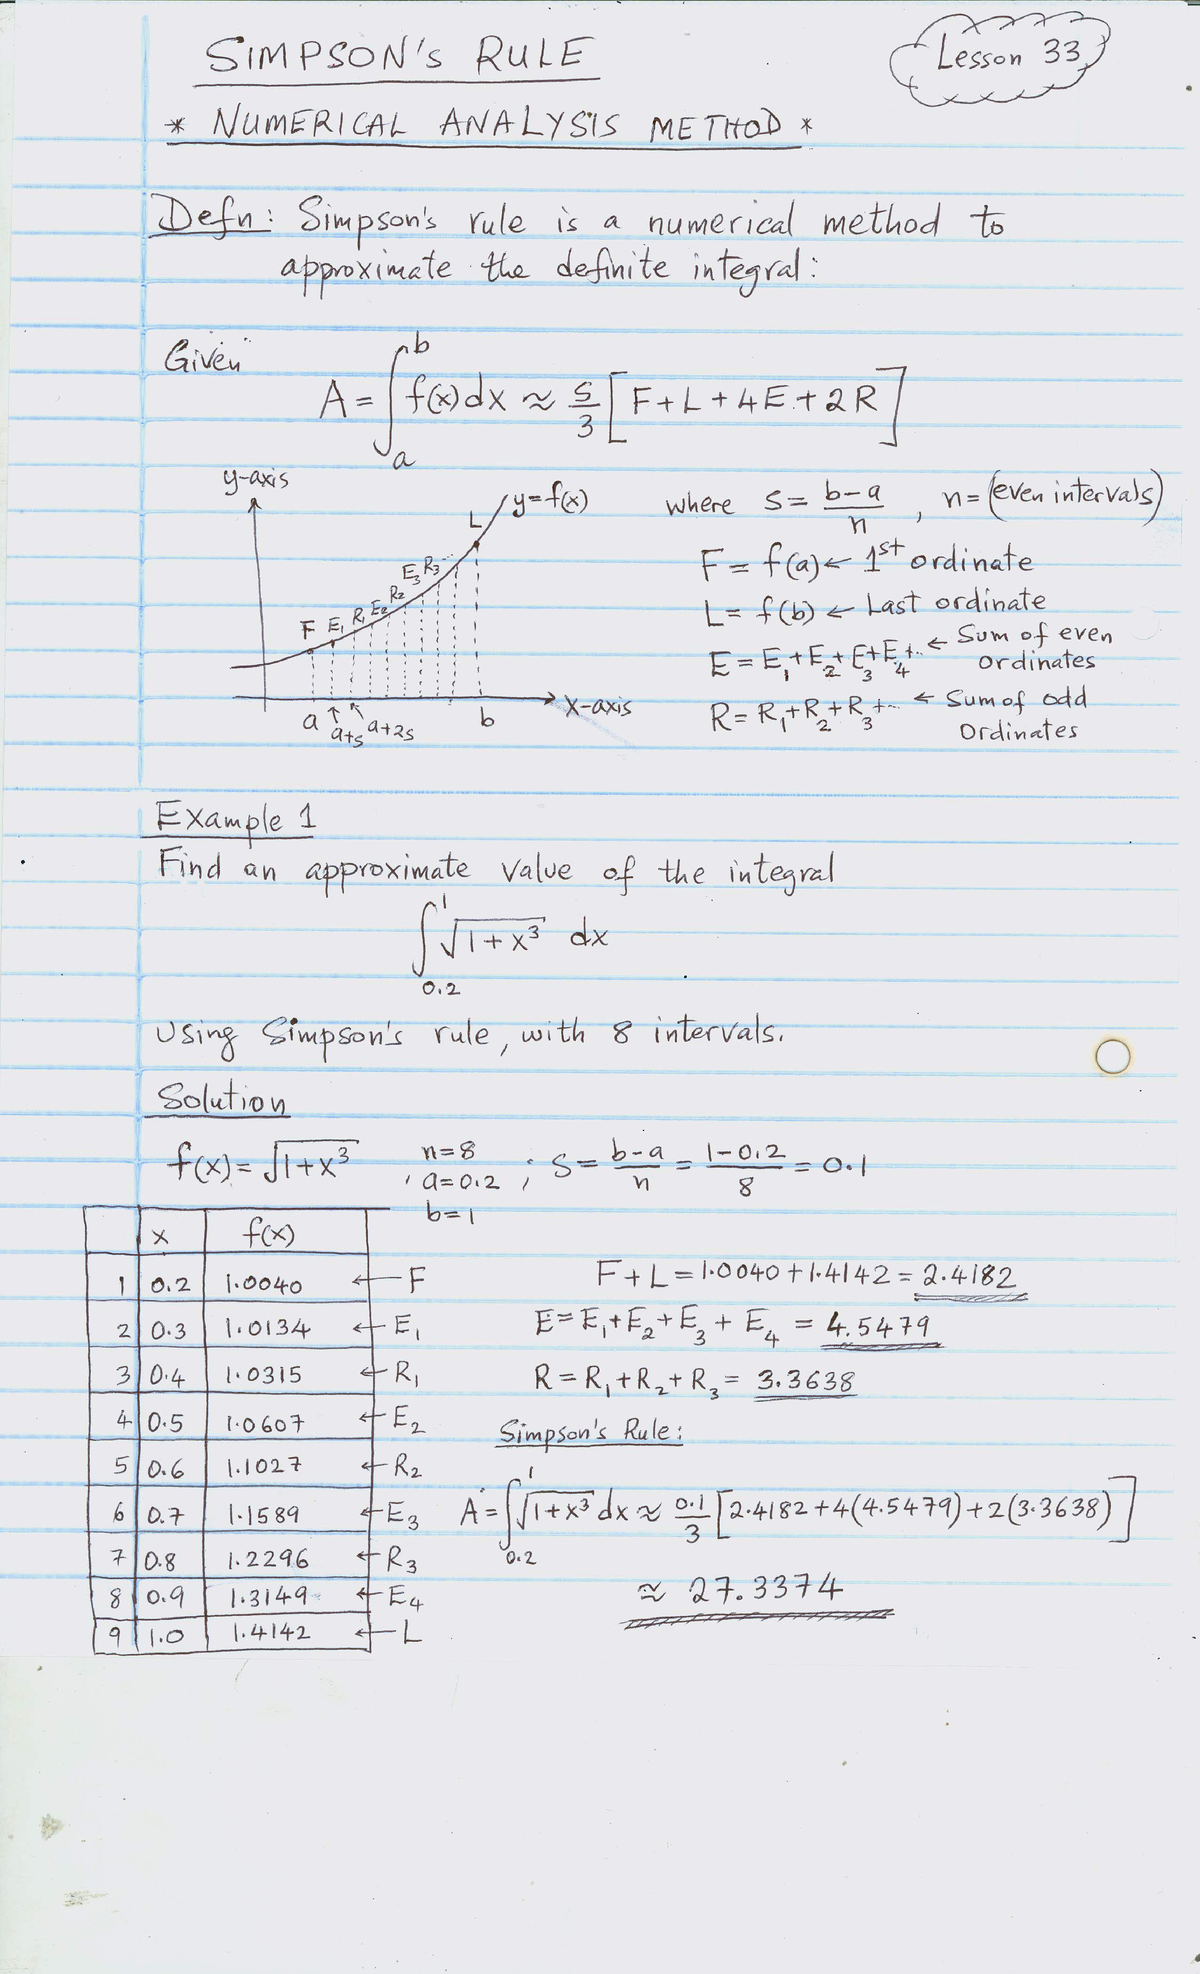 SIMPSON'S RULE
Lesson 33
* NUMERICAL ANALYSIS METHOD *
Defn: Simpson's rule is a numerical method to
approximate the definite integral:
Given
A = ∫_a^b f(x)dx ≈ S/3 [F+L+4E+2R]
y-axis
y=f(x)
L
E3 R3
R2
E2
R1
F E1
a
a+s
a+2s
b
X-axis
where S = b-a/n , n = (even intervals)
F = f(a) ← 1st ordinate
L = f(b) ← Last ordinate
E = E1+E2+E3+E4+.. ← Sum of even
ordinates
R = R1+R2+R3+... ← Sum of odd
Ordinates
Example 1
Find an approximate value of the integral
∫_0.2^1 √1+x³ dx
Using Simpson's rule, with 8 intervals.
Solution
f(x) = √1+x³ , n=8 a=0.2 b=1 ; S = b-a/n = 1-0.2/8 = 0.1
x f(x)
1 0.2 1.0040 ← F
2 0.3 1.0134 ← E1
3 0.4 1.0315 ← R1
4 0.5 1.0607 ← E2
5 0.6 1.1027 ← R2
6 0.7 1.1589 ← E3
7 0.8 1.2296 ← R3
8 0.9 1.3149 ← E4
9 1.0 1.4142 ← L
F+L = 1.0040+1.4142 = 2.4182
E = E1+E2+E3+E4 = 4.5479
R = R1+R2+R3 = 3.3638
Simpson's Rule:
A = ∫_0.2^1 √1+x³ dx ≈ 0.1/3 [2.4182+4(4.5479)+2(3.3638)]
≈ 27.3374